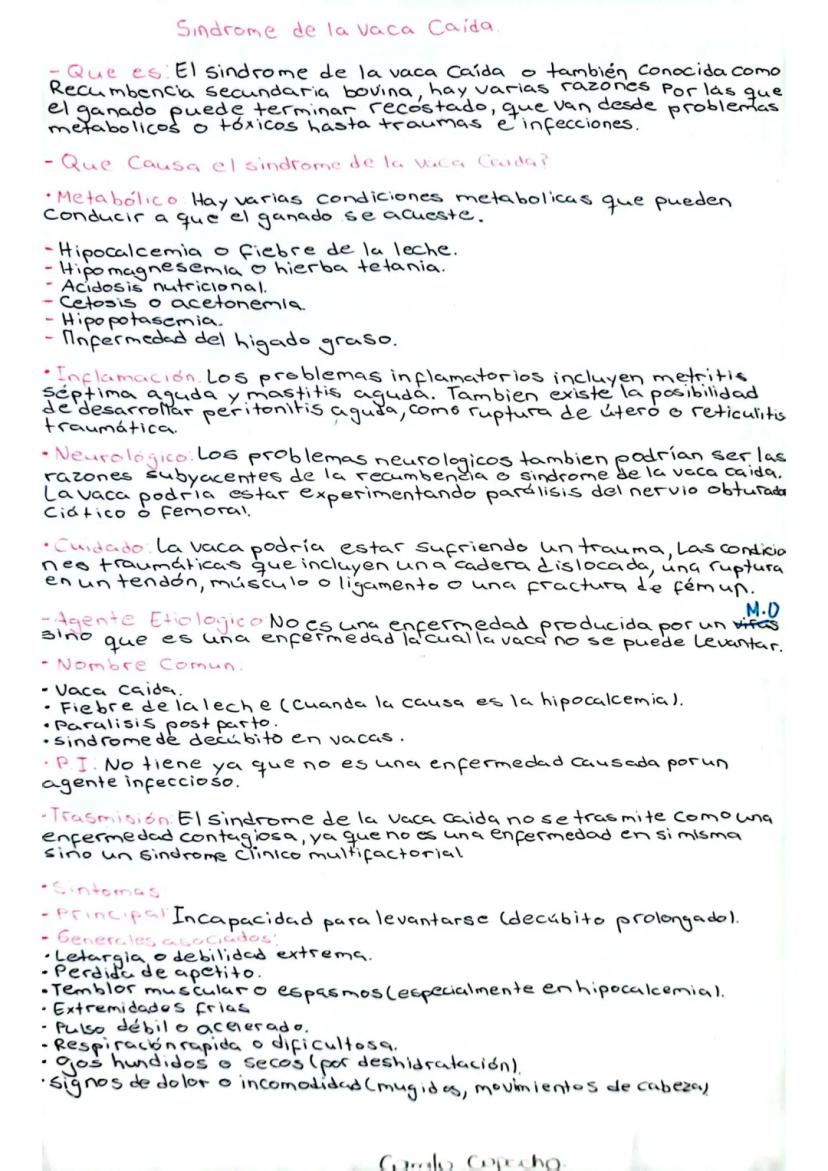 Sindrome de la vaca Caída
- Que es: El sindrome de la vaca Caída o también Conocida como
Recumbencia secundaria bovina, hay varias razones Por las que
el ganado puede terminar recostado, que van desde problemas
metabolicos o tóxicos hasta traumas e infecciones.
- Que Causa el sindrome de la vaca Caida?
• Metabólico: Hay varias condiciones metabolicas que pueden
Conducir a que el ganado se acueste.
- Hipocalcemia o fiebre de la leche.
- Hipomagnesemia o hierba tetania.
- Acidosis nutricional.
- Cetosis o acetonemia
- Hipopotasemia.
- Enfermedad del higado graso.
• Inflamación. Los problemas inflamatorios incluyen metritis
séptima aguda y mastitis aguda. Tambien existe la posibilidad
de desarrollar peritonitis aguda, como ruptura de útero o reticulitis
traumática.
• Neurológico: Los problemas neurologicos tambien podrían ser las
razones subyacentes de la recumbencia o sindrome de la vaca caida.
La vaca podria estar experimentando parálisis del nervio obturada
Ciático o femoral.
• Cuidado: La vaca podría estar sufriendo un trauma, Las condicio
nes traumáticas que incluyen una cadera dislocada, una ruptura
en un tendón, músculo o ligamento o una fractura de fémur.
- Agente Etiologico No es una enfermedad producida por un virus M.O
sino que es una enfermedad la cual la vaca no se puede Levantar.
- Nombre Comun.
• Vaca Caida.
• Fiebre de la leche (Cuanda la causa es la hipocalcemia).
• Paralisis post parto.
• sindrome de decúbito en vacas.
• P I: No tiene ya que no es una enfermedad causada por un
agente infeccioso.
- Trasmisión: El sindrome de la vaca caida no se trasmite como una
enfermedad contagiosa, ya que no es una enfermedad en si misma
sino un sindrome Clinico multifactorial
• Sintomas
- Principal Incapacidad para levantarse (decúbito prolongado).
- Generales asociados:
• Letargia o debilidad extrema.
• Perdida de apetito.
• Temblor muscular o espasmos (especialmente en hipocalcemia).
• Extremidades frias
• Pulso débil o acelerado.
• Respiración rapida o dificultosa.
• Ojos hundidos o secos (por deshidratación).
• signos de dolor o incomodidad (mugidos, movimientos de cabeza)